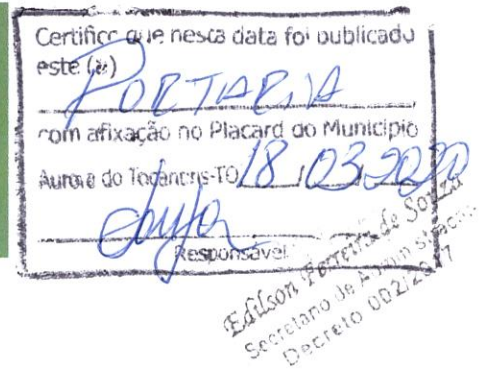 Certifico que nesta data foi publicado
este (a)
PORTARIA
com afixação no Placard do Município
Aurora do Tocantins-TO 18 / 03 2020
Responsável
Edilson Ferreira de Souza
Secretano de Administração
Decreto 002/2017